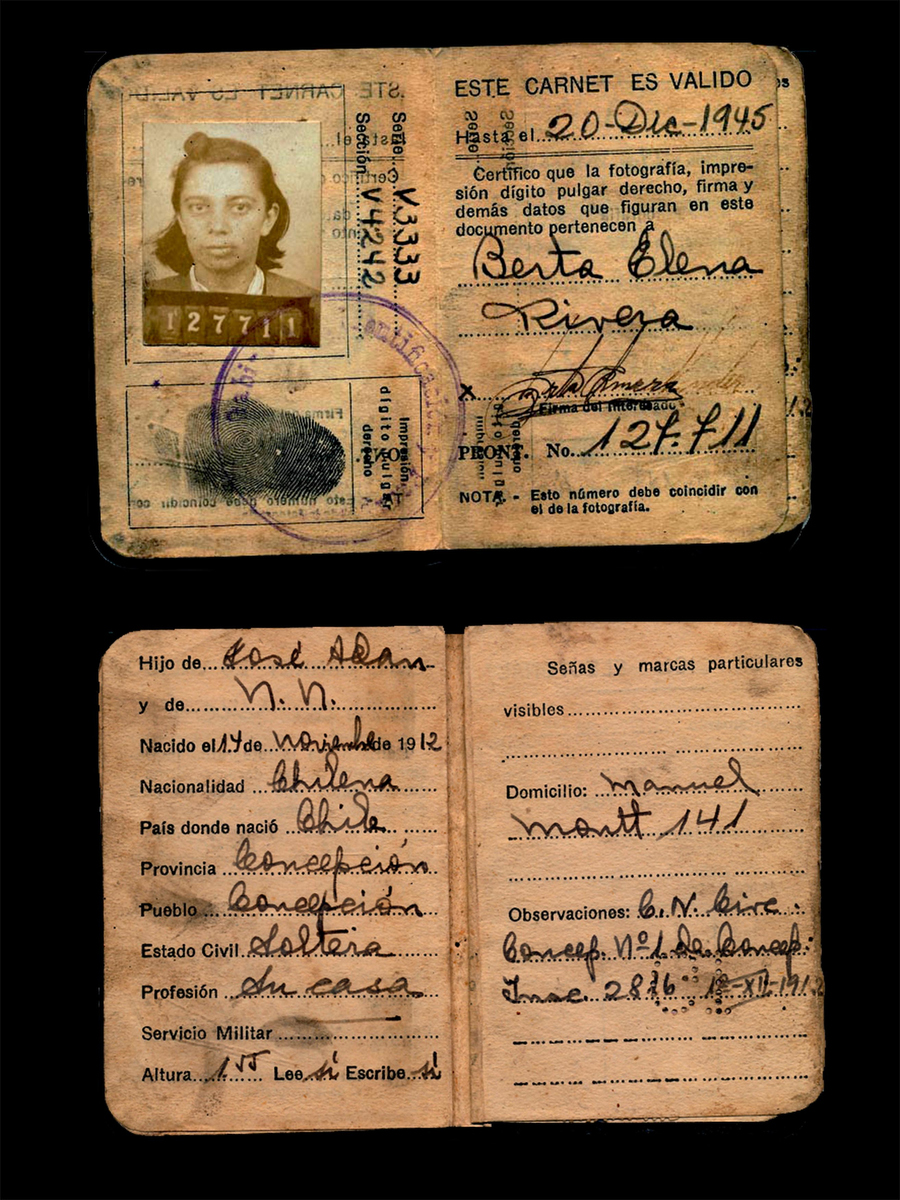 Serie V.3333
Sección V4242
127711
Impresión
dígito pulgar
derecho
ESTE CARNET ES VALIDO
Hasta el 20-Dic-1945
Certifico que la fotografía, impre-
sión dígito pulgar derecho, firma y
demás datos que figuran en este
documento pertenecen á
Berta Elena
Rivera
x
Firma del Interesado
PRONT. No. 127.711
NOTA. - Esto número debe coincidir con
el de la fotografía.
Hijo de José Adan
y de N. N.
Nacido el 14 de Noviembre de 1912
Nacionalidad Chilena
País donde nació Chile
Provincia Concepción
Pueblo Concepción
Estado Civil Soltera
Profesión Su casa
Servicio Militar
Altura 1.55 Lee sí Escribe sí
Señas y marcas particulares
visibles
Domicilio: Manuel
Montt 141
Observaciones: C. N. Circ.
Concep. Nº 1 De Concep.
Insc. 2876 -XII-1912